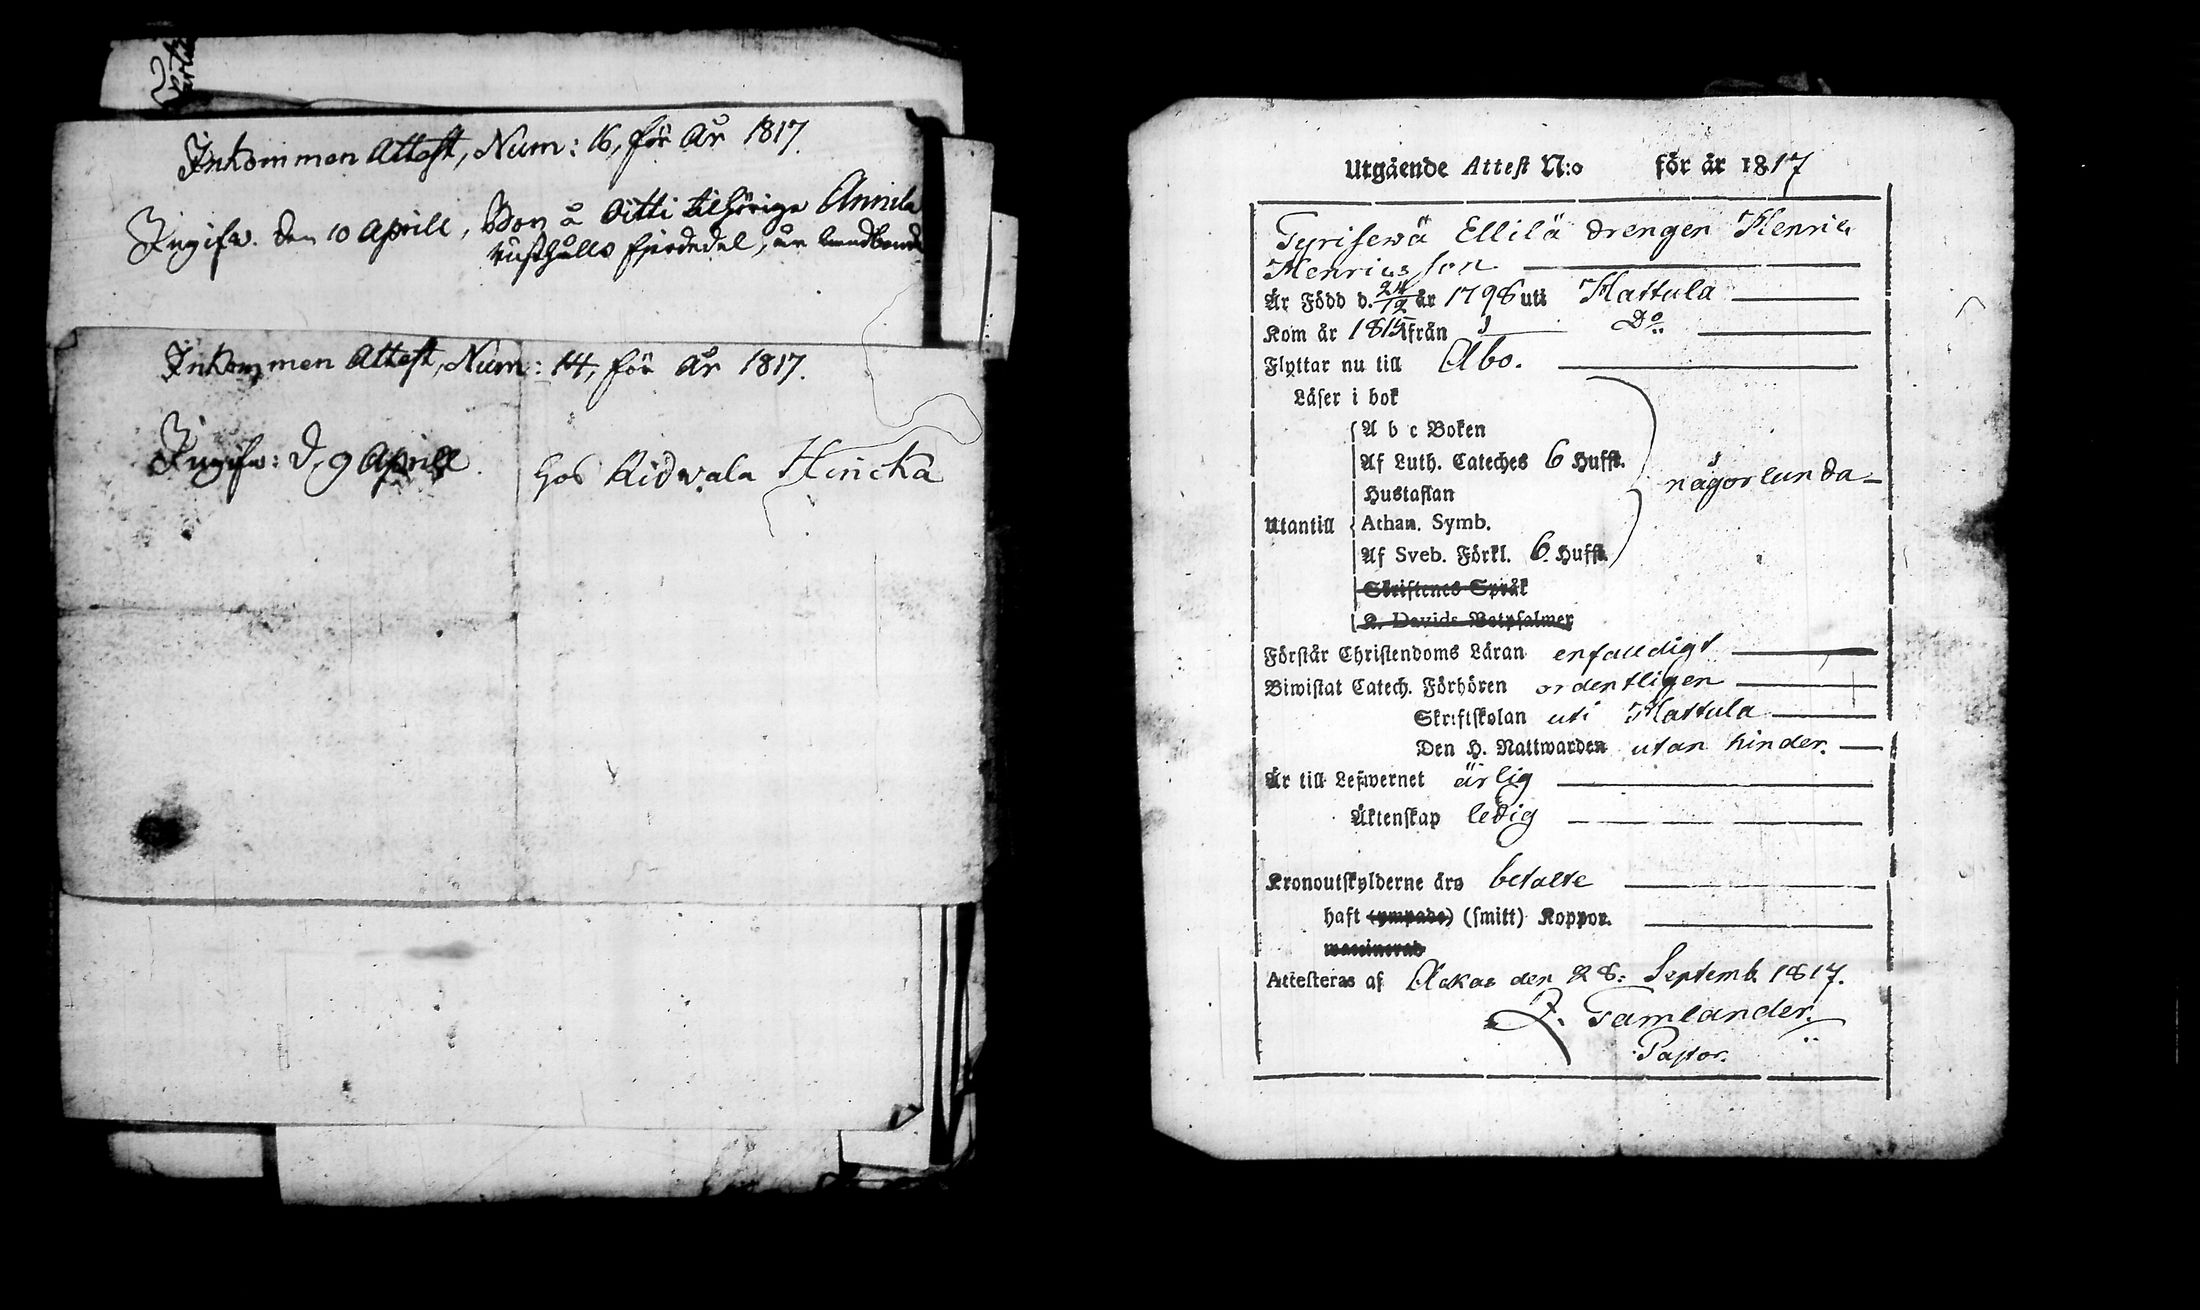 Inkommen Attest, Num: 16, för År 1817.
Ingifw. den 10 Aprill, Bor å Oitti tilhörige Annila
rusthålls fjerdedel, är landbonde
Inkommen Attest, Num: 14, för År 1817.
Ingifw: d. 9 Aprill. hos Ridwala Hincka
Utgående Attest N:o för år 1817
Tyrisewä Ellilä drengen Henric
Henricsson
Är Född d. 24/12 år 1798 uti Hattula
Kom år 1815 ifrån D:o
Flyttar nu till Åbo.
Läser i bok
A b c Boken
Af Luth. Cateches 6 Hufst.
Hustaflan
någorlunda
Utantill Athan. Symb.
Af Sveb. Förkl. 6 Hufst.
Skriftenes Språk
K. Davids Botpsalmer
Förstår Christendoms Läran enfalldigt
Biwistat Catech. Förhören ordentligen
Skriftskolan uti Hattula
Den H. Nattwarden utan hinder.
Är till Lefwernet ärlig
Äktenskap ledig
Kronoutskylderne äro betalte
haft (ympade) (smitt) Koppor.
waccinerad
Attesteras af Ackas den 28: Septemb. 1817.
Tamlander.
Pastor.